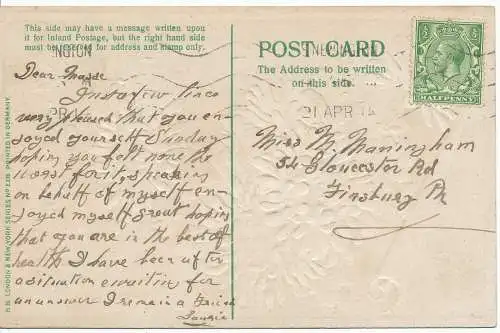 This side may have a message written upon
it for Inland Postage, but the right hand side
must be reserved for address and stamp only.
NGTON
Dear
Just a few lines
very pleased that you en-
joyed yourself Sunday
hoping you felt none the
worst for it, speaking
on behalf of myself en-
joyed myself great hoping
that you are in the best of
health I have been after
a situation & waiting for
an answer I remain a Friend
POST CARD
The Address to be written
on this side.
21 APR
HALFPENNY
Miss M. Maningham
54 Gloucester Rd
Finsbury Pk
PRINTED IN GERMANY
LONDON & NEW YORK SERIES